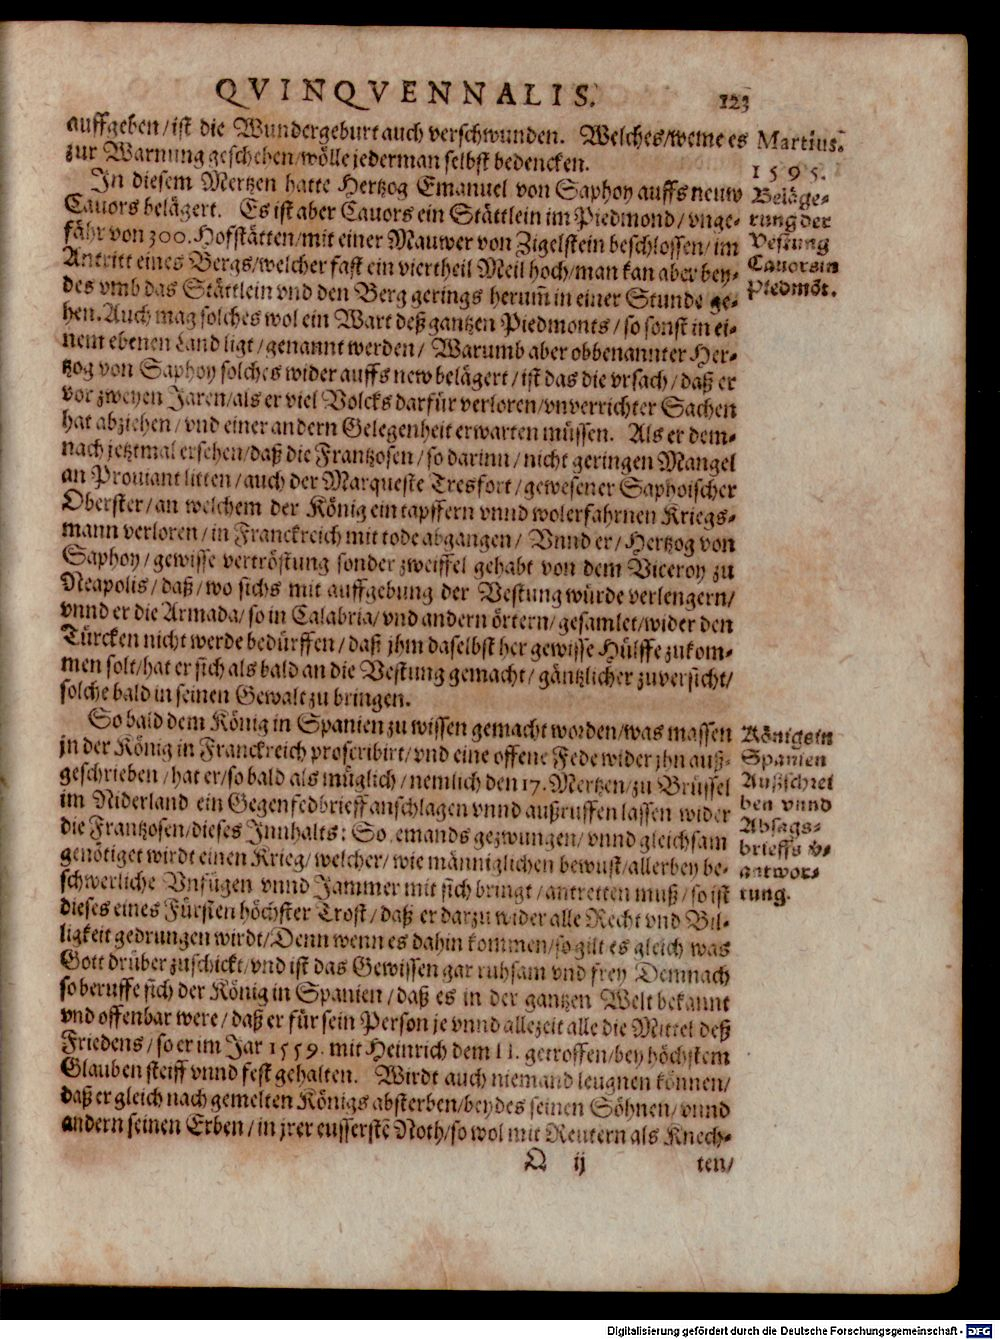 QVINQVENNALIS. 123
auffgeben/ist die Wundergeburt auch verschwunden. Welches/weme es
zur Warnung geschehen/wölle jederman selbst bedencken.
Martius.
1595.
In diesem Mertzen hatte Hertzog Emanuel von Saphoy auffs neuw
Cavors belägert. Es ist aber Cavors ein Stättlein im Piedmond/vnge-
fähr von 300. Hofstätten/mit einer Mauwer von Zigelstein beschlossen/im
Antritt eines Bergs/welcher fast ein viertheil Meil hoch/man kan aber bey-
des vmb das Stättlein vnd den Berg gerings herum̄ in einer Stunde ge-
hen. Auch mag solches wol ein Wart deß gantzen Piedmonts/so sonst in ei-
nem ebenen Land ligt/genannt werden/Warumb aber obbenannter Her-
tzog von Saphoy solches wider auffs new belägert/ist das die vrsach/daß er
vor zweyen Jaren/als er viel Volcks darfür verloren/vnverrichter Sachen
hat abziehen/vnd einer andern Gelegenheit erwarten müssen. Als er dem-
nach jetztmal ersehen/daß die Frantzosen/so darinn/nicht geringen Mangel
an Proviant litten/auch der Marqueste Tresfort/gewesener Saphoischer
Oberster/an welchem der König ein tapffern vnnd wolerfahrnen Kriegs-
mann verloren/in Franckreich mit tode abgangen/Vnnd er/Hertzog von
Saphoy/gewisse vertröstung sonder zweiffel gehabt von dem Viceroy zu
Neapolis/daß/wo sichs mit auffgebung der Vestung würde verlengern/
vnnd er die Armada/so in Calabria/vnd andern örtern/gesamlet/wider den
Türcken nicht werde bedürffen/daß jhm daselbst her gewisse Hülffe zukom-
men solt/hat er sich als bald an die Vestung gemacht/gäntzlicher zuversicht/
solche bald in seinen Gewalt zu bringen.
Beläge-
rung der
Vestung
Cavors in
Piedmōt.
So bald dem König in Spanien zu wissen gemacht worden/was massen
jn der König in Franckreich proscribirt/vnd eine offene Fede wider jhn auß-
geschrieben/hat er/so bald als müglich/nemlich den 17. Mertzen/zu Brüssel
im Niderland ein Gegenfedbrieff anschlagen vnnd außruffen lassen wider
die Frantzosen/dieses Innhalts: So emands gezwungen/vnnd gleichsam
genötiget wirdt einen Krieg/welcher/wie männiglichen bewust/allerbey be-
schwerliche Vnfügen vnnd Jammer mit sich bringt/antretten muß/so ist
dieses eines Fürsten höchster Trost/daß er darzu wider alle Recht vnd Bil-
ligkeit gedrungen wirdt/Denn wenn es dahin kommen/so gilt es gleich was
Gott drüber zuschickt/vnd ist das Gewissen gar ruhsam vnd frey Demnach
so beruffe sich der König in Spanien/daß es in der gantzen Welt bekannt
vnd offenbar were/daß er für sein Person je vnnd allezeit alle die Mittel deß
Friedens/so er im Jar 1559. mit Heinrich dem II. getroffen/bey höchstem
Glauben steiff vnnd fest gehalten. Wirdt auch niemand leugnen können/
daß er gleich nach gemelten Königs absterben/beydes seinen Söhnen/vnnd
andern seinen Erben/in jrer eusserstē Noth/so wol mit Reutern als Knech-
Königs in
Spanien
Außschrei
ben vnnd
Absags-
brieffs v-
antwor-
tung.
Q ij ten/
Digitalisierung gefördert durch die Deutsche Forschungsgemeinschaft - DFG